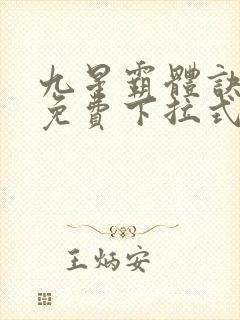 九星霸體訣
免費下拉式
王炳安